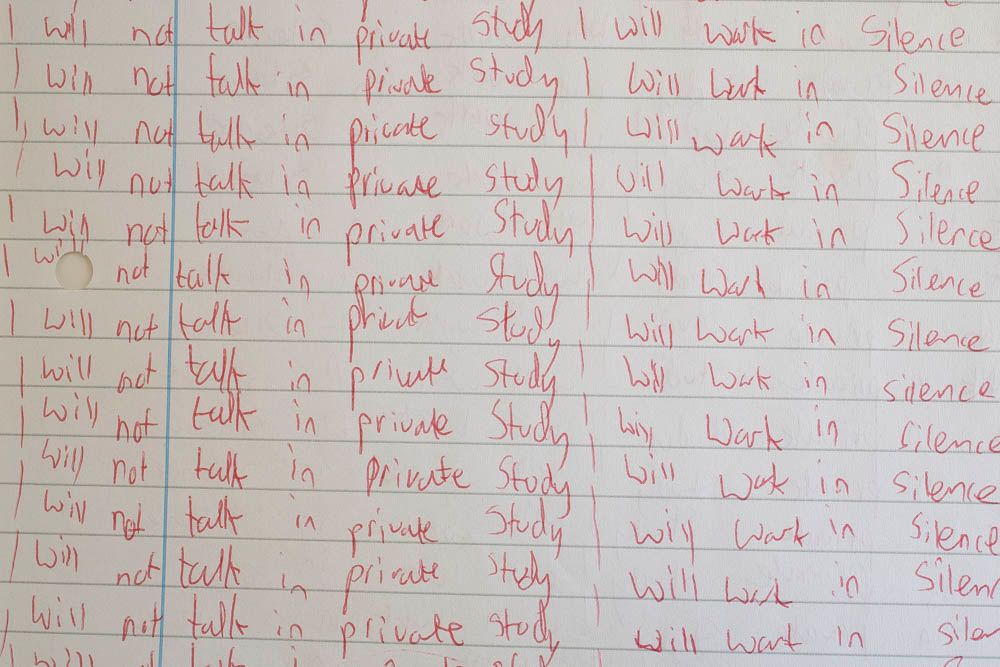 I will not talk in private study I will work in Silence
I will not talk in private study I will work in Silence
I will not talk in private study I will work in Silence
will not talk in private study I will work in Silence
I will not talk in private Study I will work in Silence
I will not talk in private Study I will Work in Silence
I will not talk in privat study I will work in Silence
I will not talk in private Study I will work in silence
I will not talk in private Study I will Work in silence
I will not talk in private Study I will Work in silence
I will not talk in private Study I will Work in Silence
I will not talk in private Study I will work in Silenc
I will not talk in private study I will work in silen
I will not talk in